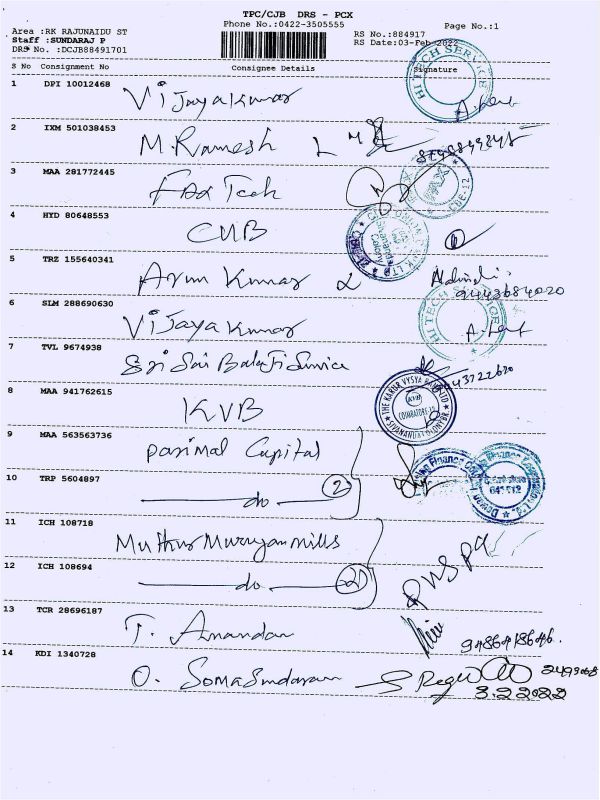 TPC/CJB DRS - PCX
Phone No.:0422-3505555
Page No.:1
Area :RK RAJUNAIDU ST
Staff :SUNDARAJ P
DRS No. :DCJB88491701
RS No.:884917
RS Date:03-Feb-2022
S No Consignment No Consignee Details Signature
1 DPI 10012468 Vijayakumar
HI TECH SERVICE
2 IXM 501038453 M. Ramesh
3 MAA 281772445 Fax Tech
4 HYD 80648553 CUB
5 TRZ 155640341 Arun Kumar
9443684020
6 SLM 288690630 Vijayakumar
HI TECH SERVICE
7 TVL 9674938 Sri Sai Balaji Service
8 MAA 941762615 KVB
THE KARUR VYSYA BANK LTD
COIMBATORE
9 MAA 563563736 Parimal Capital
10 TRP 5604897 do 2
11 ICH 108718 Muthur Murugan mills
12 ICH 108694 do
13 TCR 28696187 T. Anandan
9486418646.
14 KDI 1340728 O. Somasundaram
3.2.2022